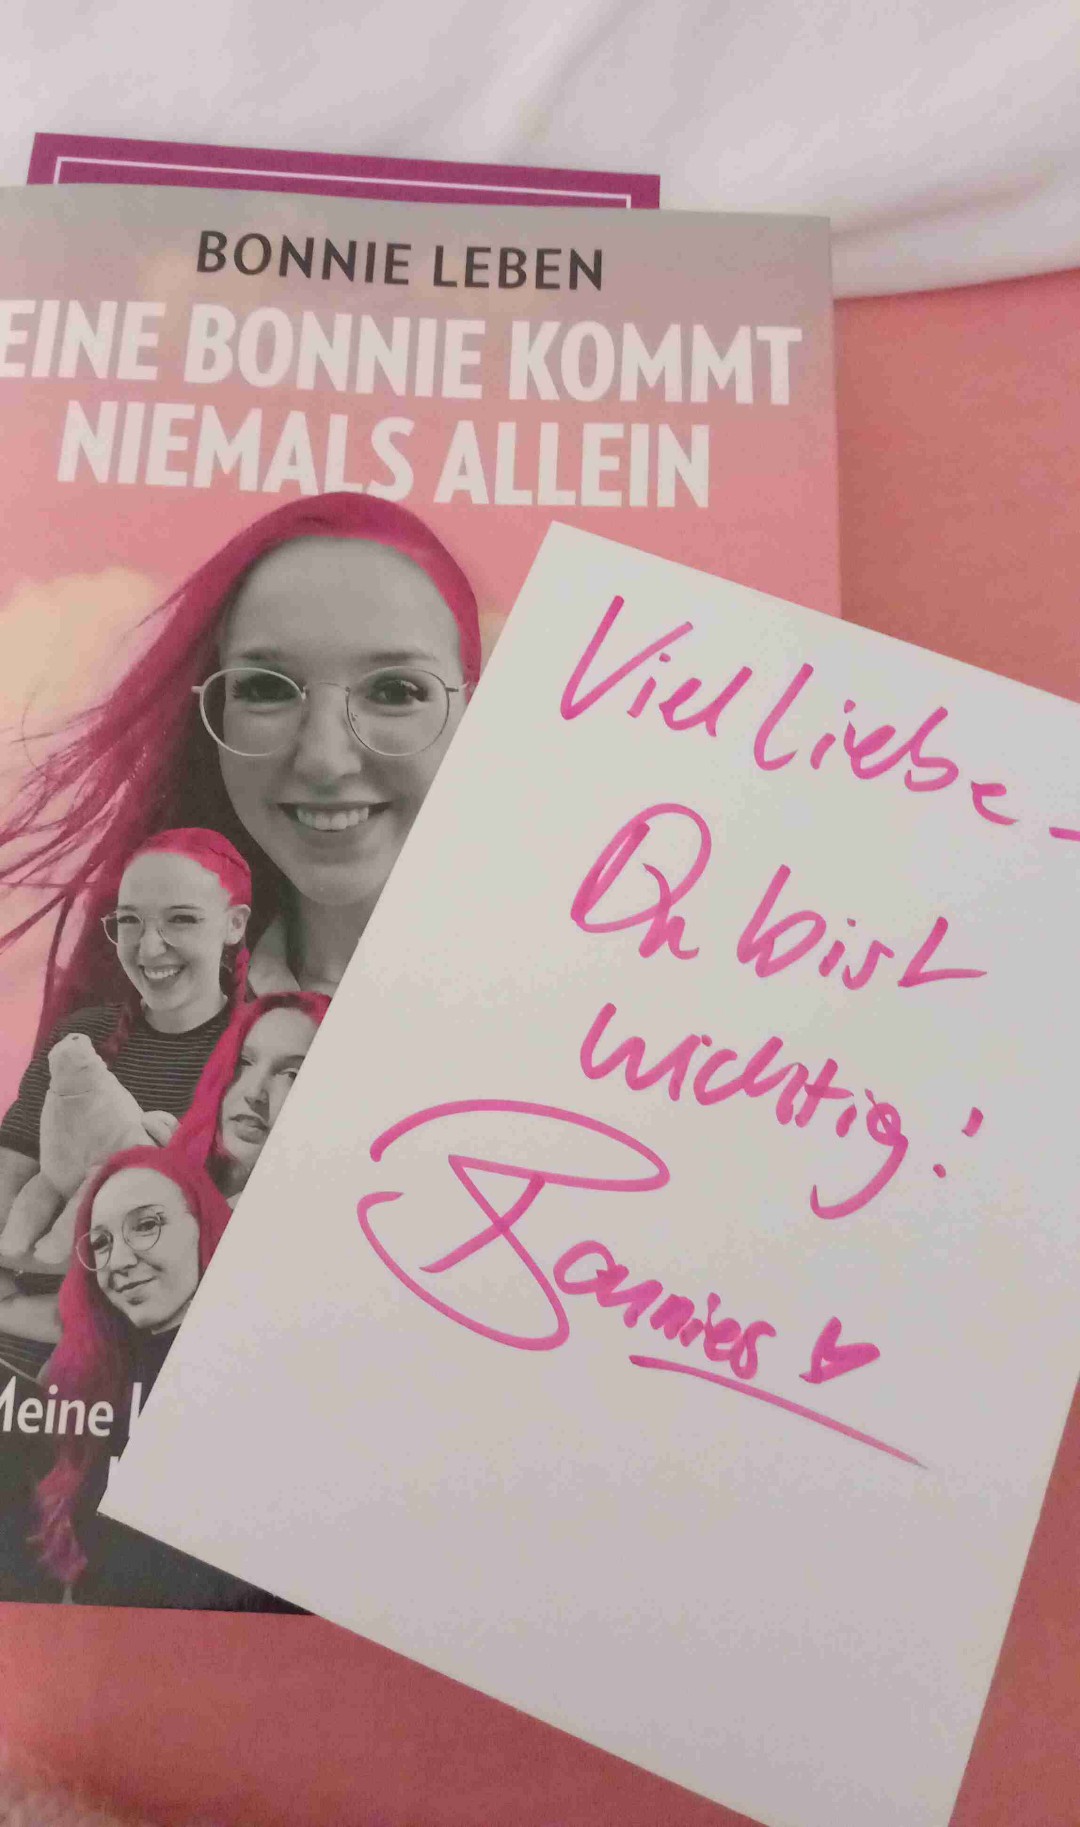 BONNIE LEBEN
EINE BONNIE KOMMT
NIEMALS ALLEIN
Meine
Viel Liebe -
Du bist
wichtig!
Bonnies